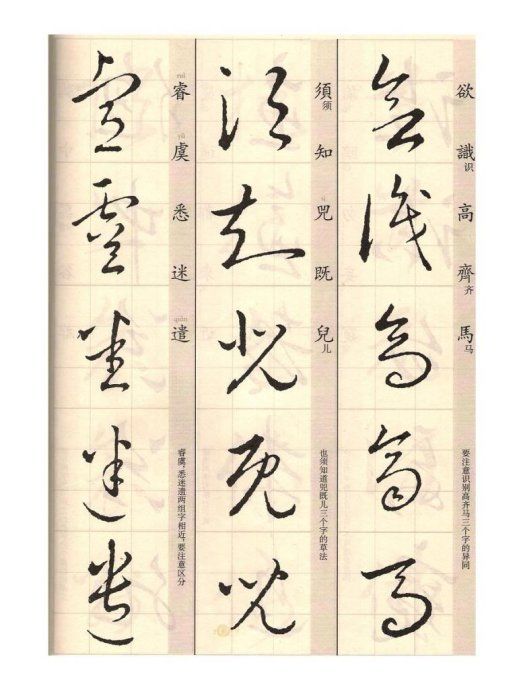 欲識识高齊齐馬马
要注意识别高齐马三个字的异同
須须知兕既兒儿
sì
也须知道兕既儿三个字的草法
睿虞悉迷遣
ruì yú qiǎn
睿虞、悉迷遣两组字相近,要注意区分
欲識高齊馬
須知兕既兒
睿虞悉迷遣